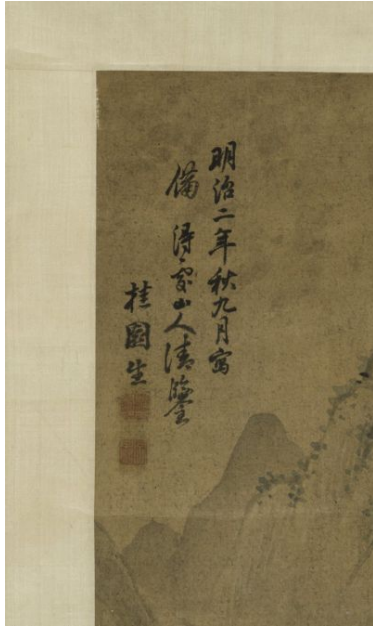 明治二年秋九月寫
備　得家山人清鑒
桂園生